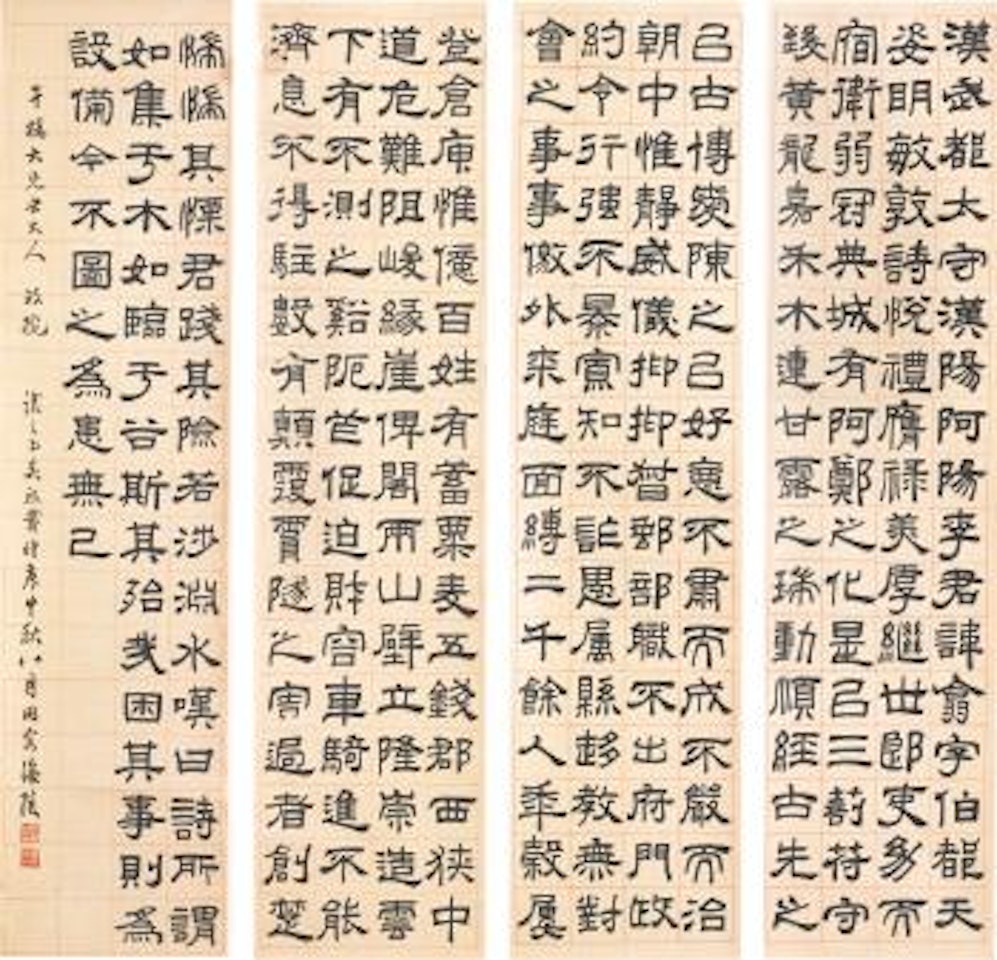 漢武都太守漢陽阿陽李君諱翕字伯都天
姿明敏敦詩悅禮膺祿美厚繼世郎吏幼而
宿衛弱冠典城有阿鄭之化是以三剖符守
致黃龍嘉禾木連甘露之瑞動順經古先之
以古博愛陳之以好惡不肅而成不嚴而治
朝中惟靜威儀抑抑督郵部職不出府門政
約令行強不暴寡知不詐愚屬縣趍教無對
會之事事徼外來庭面縛二千餘人年穀屢
登倉庾惟億百姓有蓄粟麦五錢郡西狹中
道危難阻峻緣崖俾閣兩山壁立隆崇造雲
下有不測之谿阨芒促迫財容車騎進不能
濟息不得駐數有顛覆霣隧之害過者創楚
惴惴其慄君踐其險若涉淵水嘆曰詩所謂
如集于木如臨于谷斯其殆哉困其事則為
設備今不圖之為患無已
大兄老大人 讓之弟吳熙載時庚申秋八月同客海陵